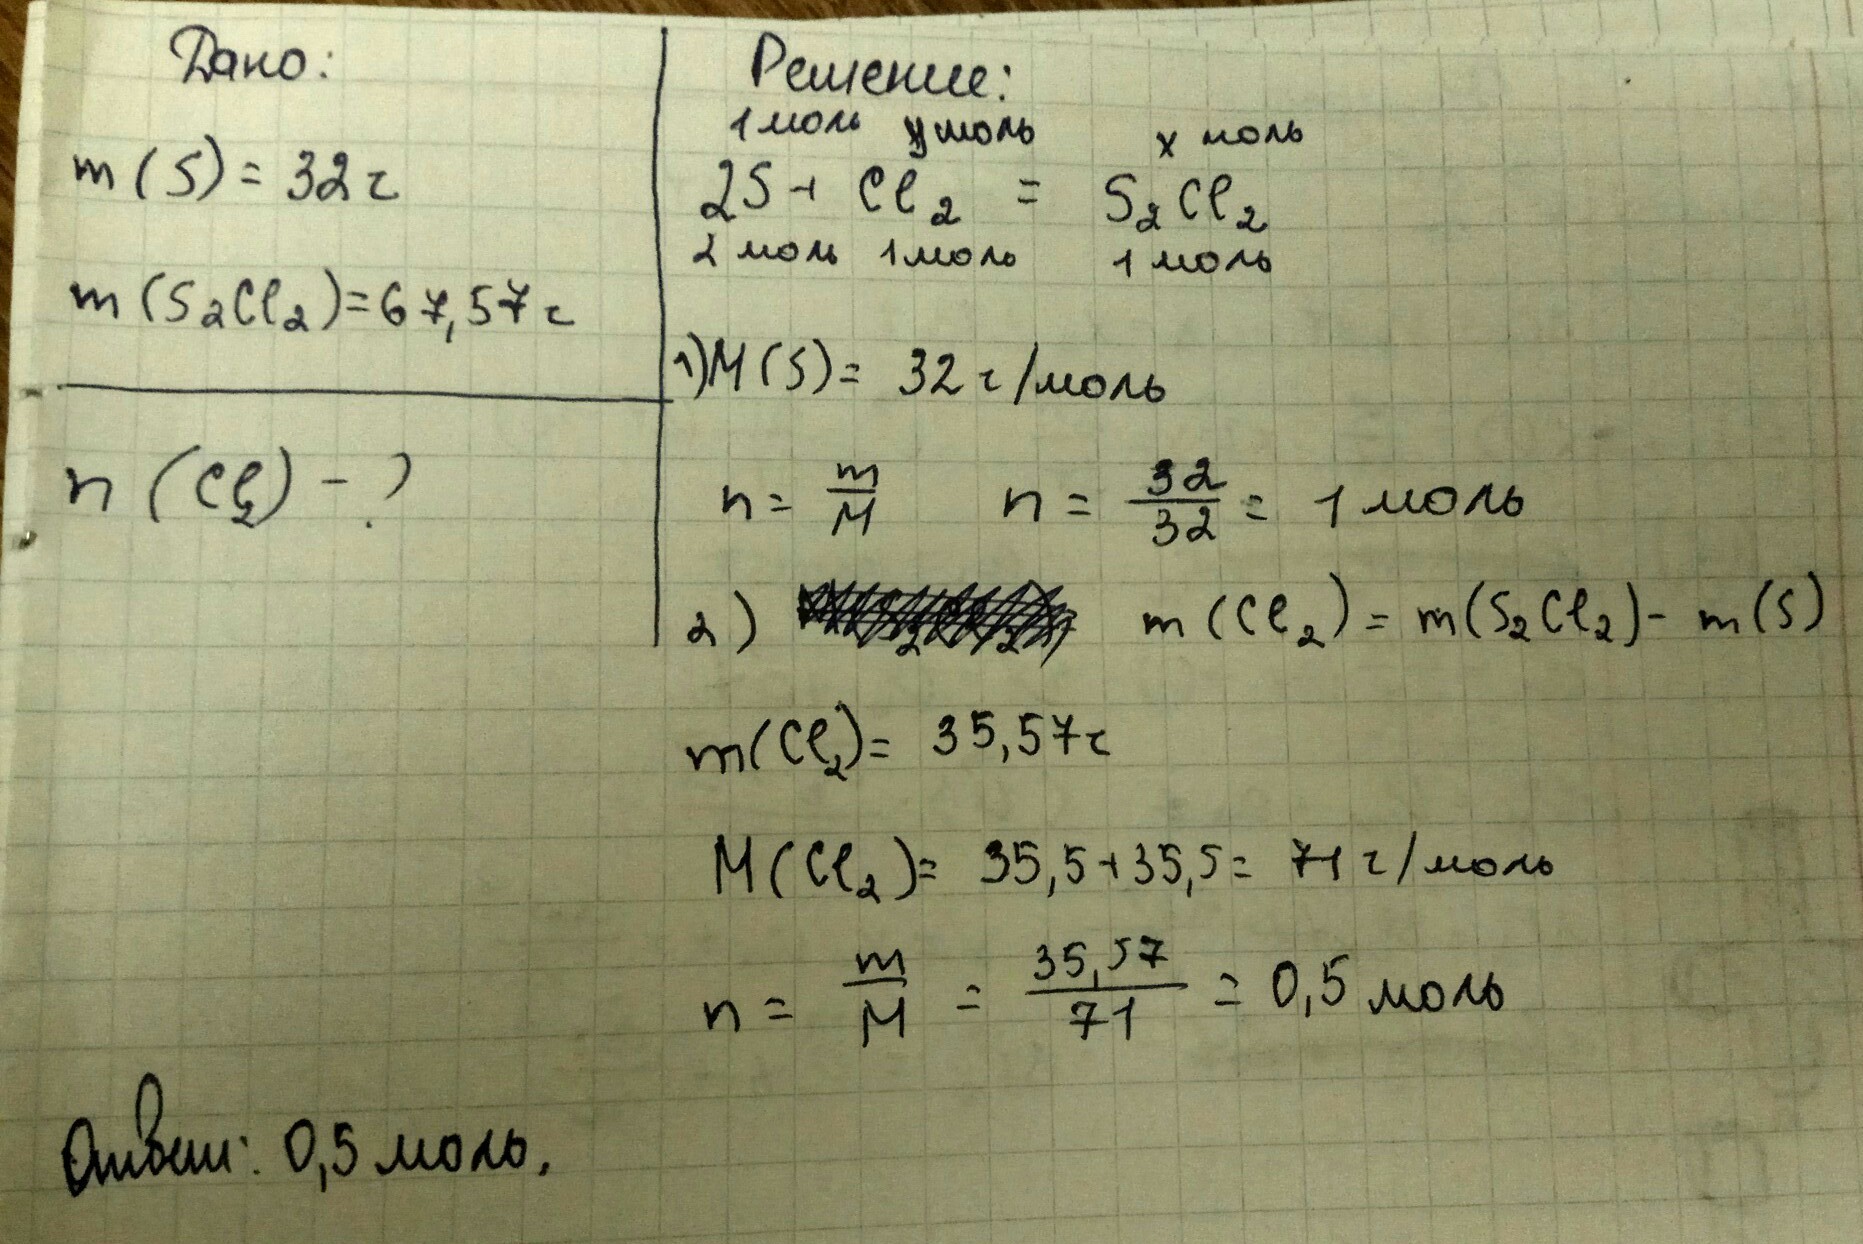 Дано:
m(S) = 32г
m(S₂Cl₂)=67,57г
n(Cl₂) - ?
Решение:
1 моль y моль x моль
2S + Cl₂ = S₂Cl₂
2 моль 1 моль 1 моль
1) M(S) = 32 г/моль
n = m/M n = 32/32 = 1 моль
2) m(Cl₂) = m(S₂Cl₂) - m(S)
m(Cl₂) = 35,57г
M(Cl₂) = 35,5+35,5 = 71 г/моль
n = m/M = 35,57/71 = 0,5 моль
Ответ: 0,5 моль.